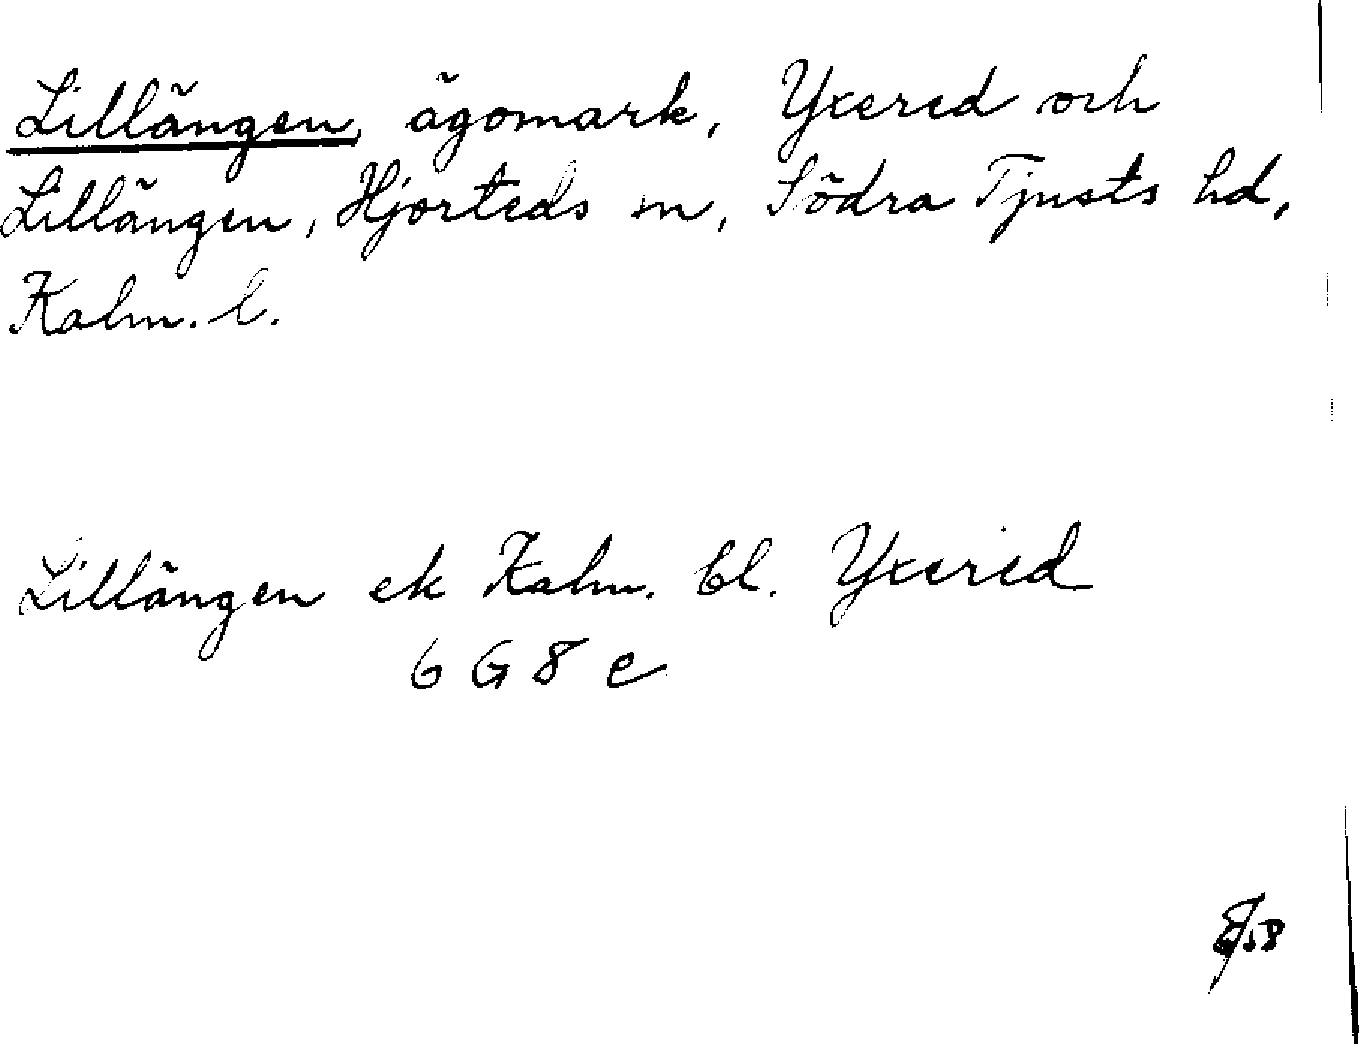 Lillängen, ägomark, Yxered och
Lillängen, Hjorteds sn, Södra Tjusts hd,
Kalm. l.
Lillängen ek Kalm. bl. Yxered
6 G 8 e